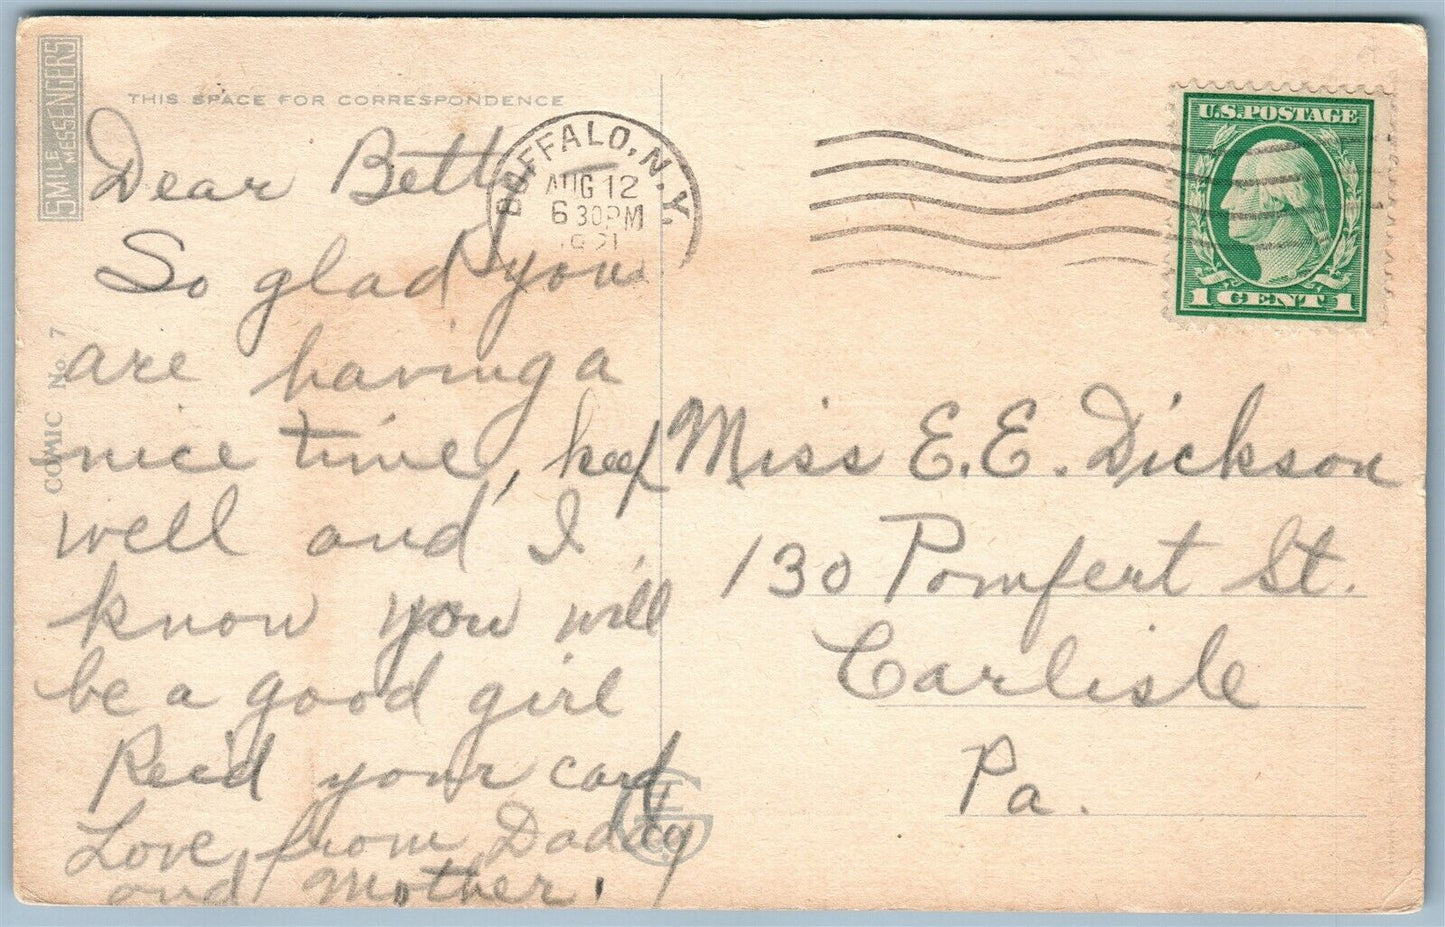 SMILE MESSENGERS
COMIC No 7
THIS SPACE FOR CORRESPONDENCE
Dear Betty
So glad you
are having a
nice time, keep
well and I
know you will
be a good girl
Rec'd your card
Love from Daddy
and Mother.
BUFFALO, N.Y.
AUG 12
6 30PM
U.S. POSTAGE
1 CENT 1
Miss E. E. Dickson
130 Pomfert St.
Carlisle
Pa.